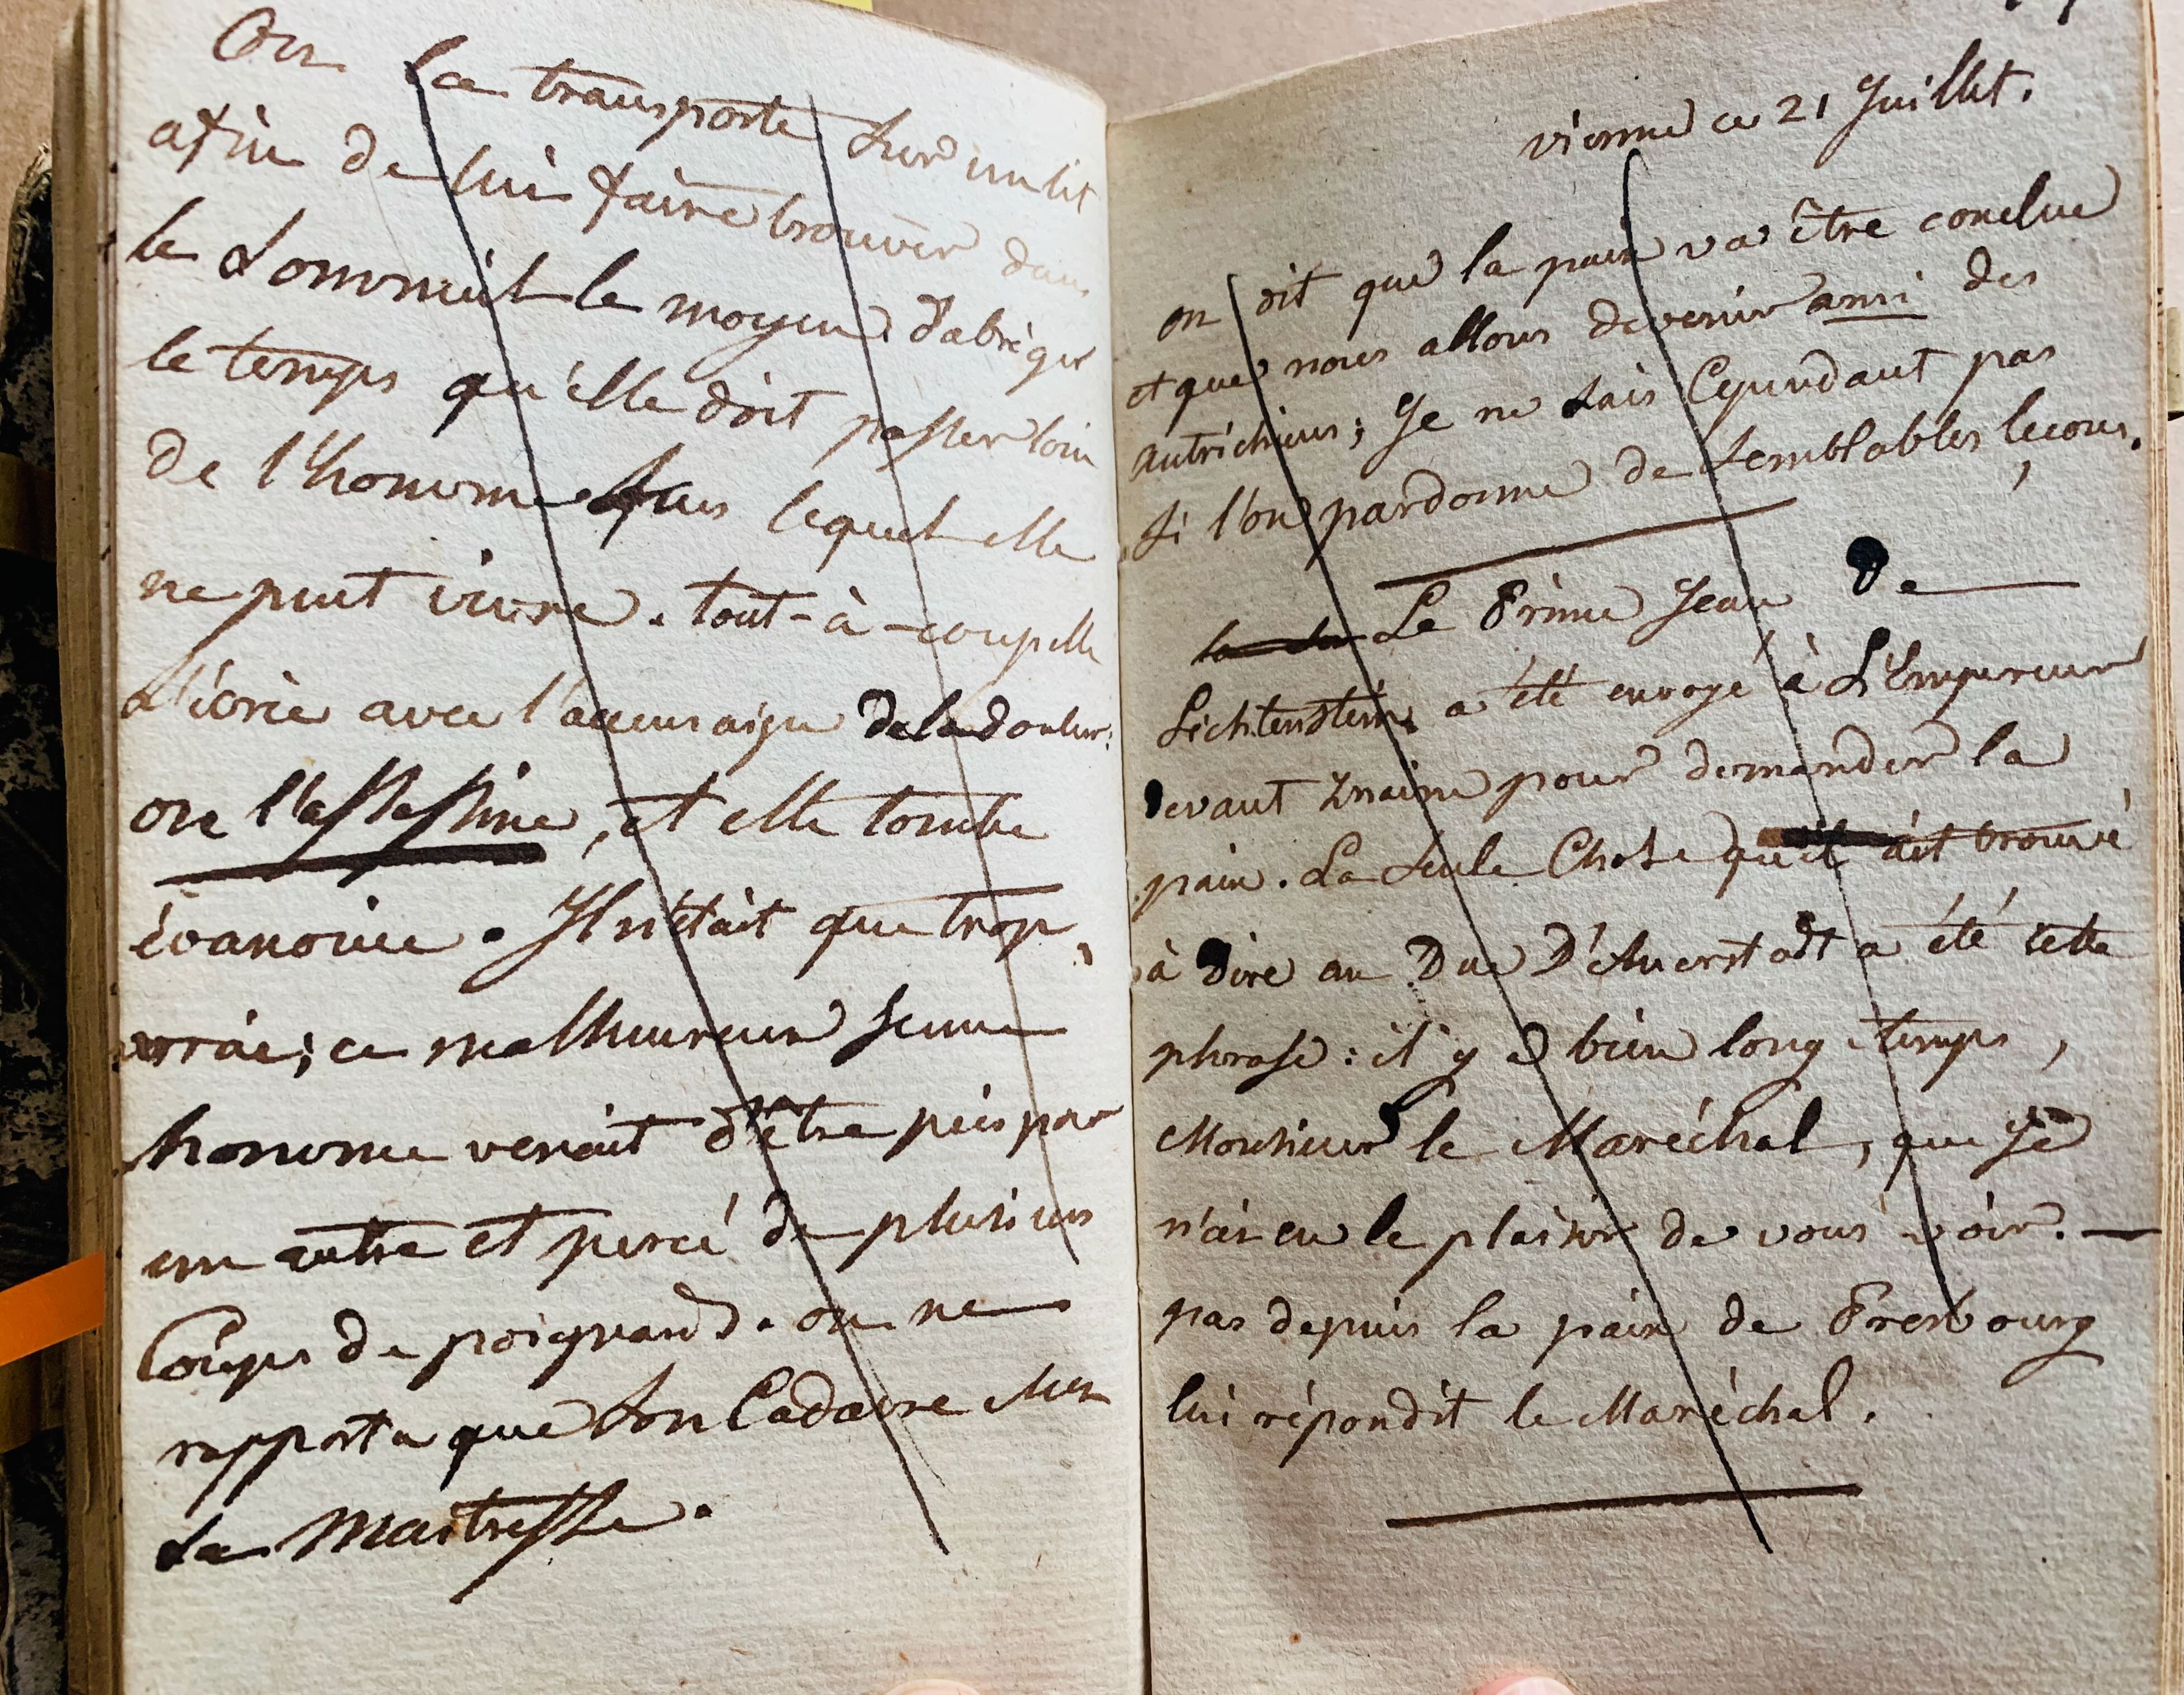 On la transporte sur un lit
afin de lui faire trouver dans
le sommeil le moyen d'abréger
le temps qu'elle doit passer loin
de l'homme sans lequel elle
ne peut vivre. tout-à-coup elle
s'écrie avec l'accent aigu de la douleur:
on l'assassine, et elle tombe
évanouie. Il n'était que trop
vrai; ce malheureux jeune
homme venait d'être pris pour
un autre et percé de plusieurs
Coups de poignard. on ne
rapporta que son Cadavre chez
sa Maitresse.
vienne ce 21 Juillet.
on dit que la paix va être conclue
et que nous allons devenir ami des
autrichiens; Je ne sais Cependant pas
si l'on pardonne de semblables leçons.
Le Prince Jean de
Lichtenstein a été envoyé à L'Empereur
devant Znaim pour demander la
paix. La seule Chose qu'il ait trouvé
à dire au Duc D'Auerstadt a été cette
phrase: il y a bien long temps,
Monsieur le Maréchal, que Je
n'ai eu le plaisir de vous voir. —
pas depuis la paix de Presbourg
lui répondit le Maréchal.